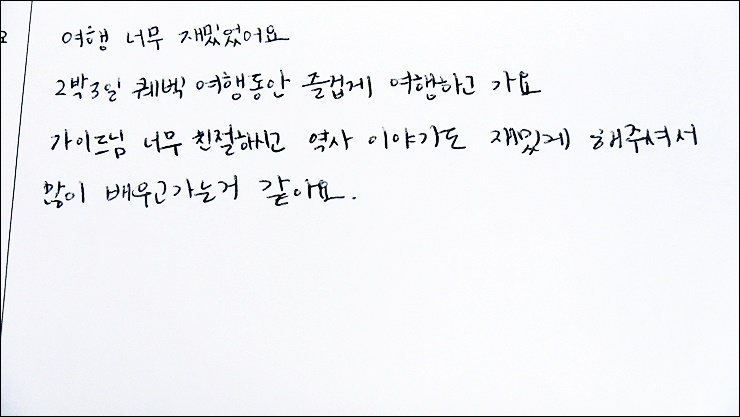 요
여행 너무 재밌었어요
2박3일 퀘벡 여행동안 즐겁게 여행하고 가요
가이드님 너무 친절하시고 역사 이야기도 재밌게 해주셔서
많이 배우고가는거 같아요.